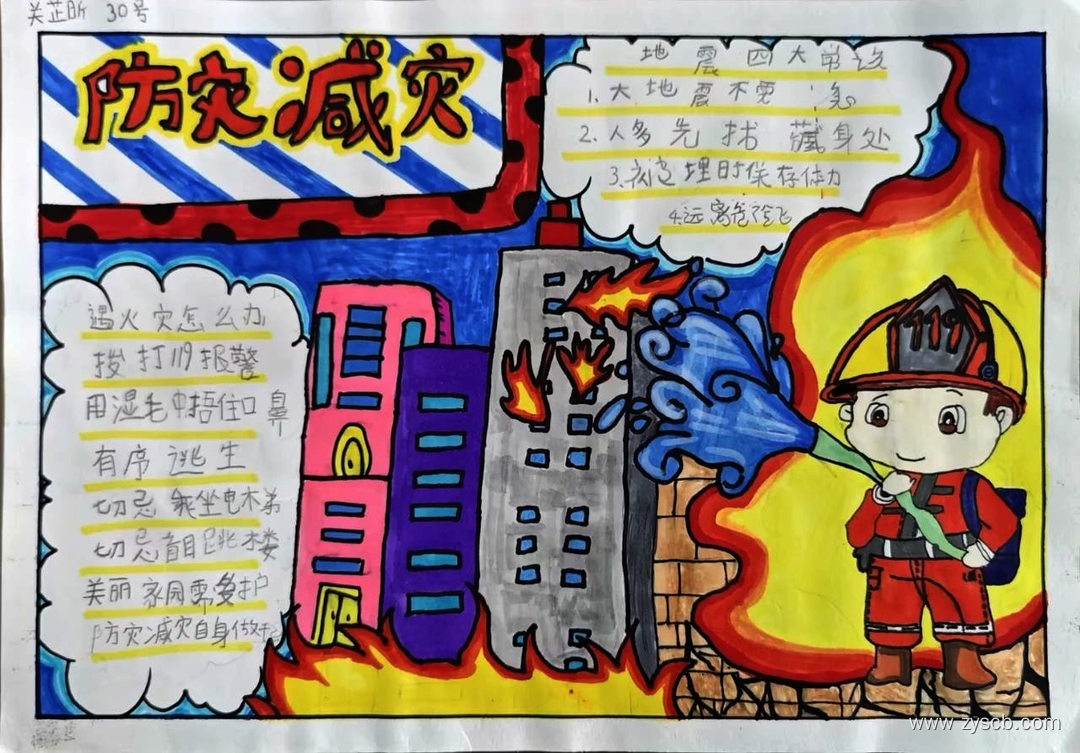 关芷昕 30号
防灾减灾
地震四大常识
1.大地震不要急
2.人多先找藏身处
3.被埋时保存体力
4.远离危险
遇火灾怎么办
拨打119报警
用湿毛巾捂住口鼻
有序逃生
切忌乘坐电梯
切忌盲目跳楼
美丽家园需爱护
防灾减灾自身做
119
www.zyscb.com